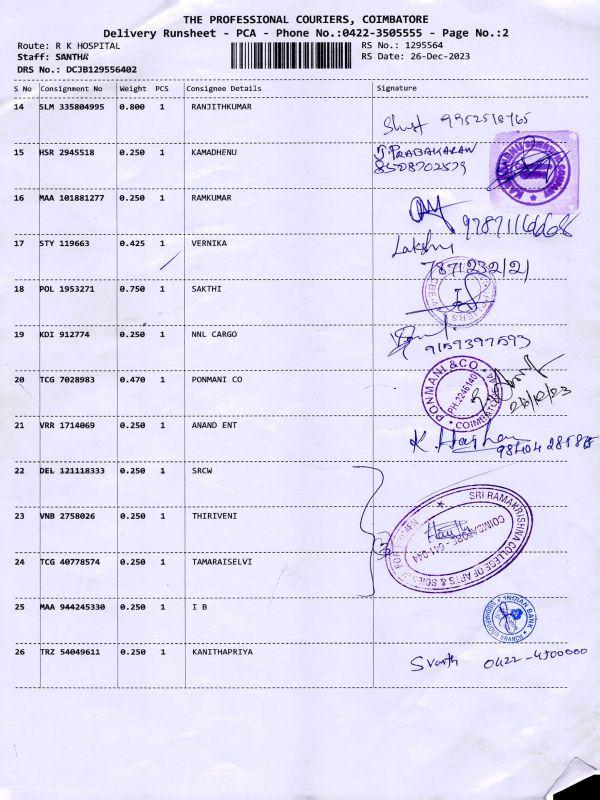 THE PROFESSIONAL COURIERS, COIMBATORE
Delivery Runsheet - PCA - Phone No.:0422-3505555 - Page No.:2
Route: R K HOSPITAL RS No.: 1295564
Staff: SANTHA RS Date: 26-Dec-2023
DRS No.: DCJB129556402
S No Consignment No Weight PCS Consignee Details Signature
14 SLM 335804995 0.800 1 RANJITHKUMAR
9952518765
15 HSR 2945518 0.250 1 KAMADHENU J. PRABAKARAN
8508702579
16 MAA 101881277 0.250 1 RAMKUMAR
17 STY 119663 0.425 1 VERNIKA Lakshy
18 POL 1953271 0.750 1 SAKTHI
19 KDI 912774 0.250 1 NNL CARGO
9159397593
20 TCG 7028983 0.470 1 PONMANI CO PONMANI & CO
PH:2246140
COIMBATORE
21 VRR 1714069 0.250 1 ANAND ENT
22 DEL 121118333 0.250 1 SRCW
23 VNB 2758026 0.250 1 THIRIVENI
SRI RAMAKRISHNA COLLEGE OF ARTS & SCIENCE FOR WOMEN
COIMBATORE - 641 044
24 TCG 40778574 0.250 1 TAMARAISELVI
25 MAA 944245330 0.250 1 I B INDIAN BANK
26 TRZ 54049611 0.250 1 KANITHAPRIYA
0422-4500000